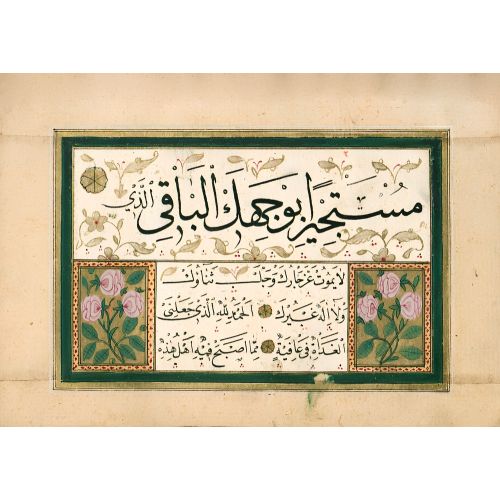 مُسْتَجِيرًا بِوَجْهِكَ الْبَاقِي الَّذِي
لا يموت عز جارك وجل ثناؤك
ولا اله غيرك الحمد لله الذي جعلني
الغداة في عافية مما اصبح فيه اهل هذه